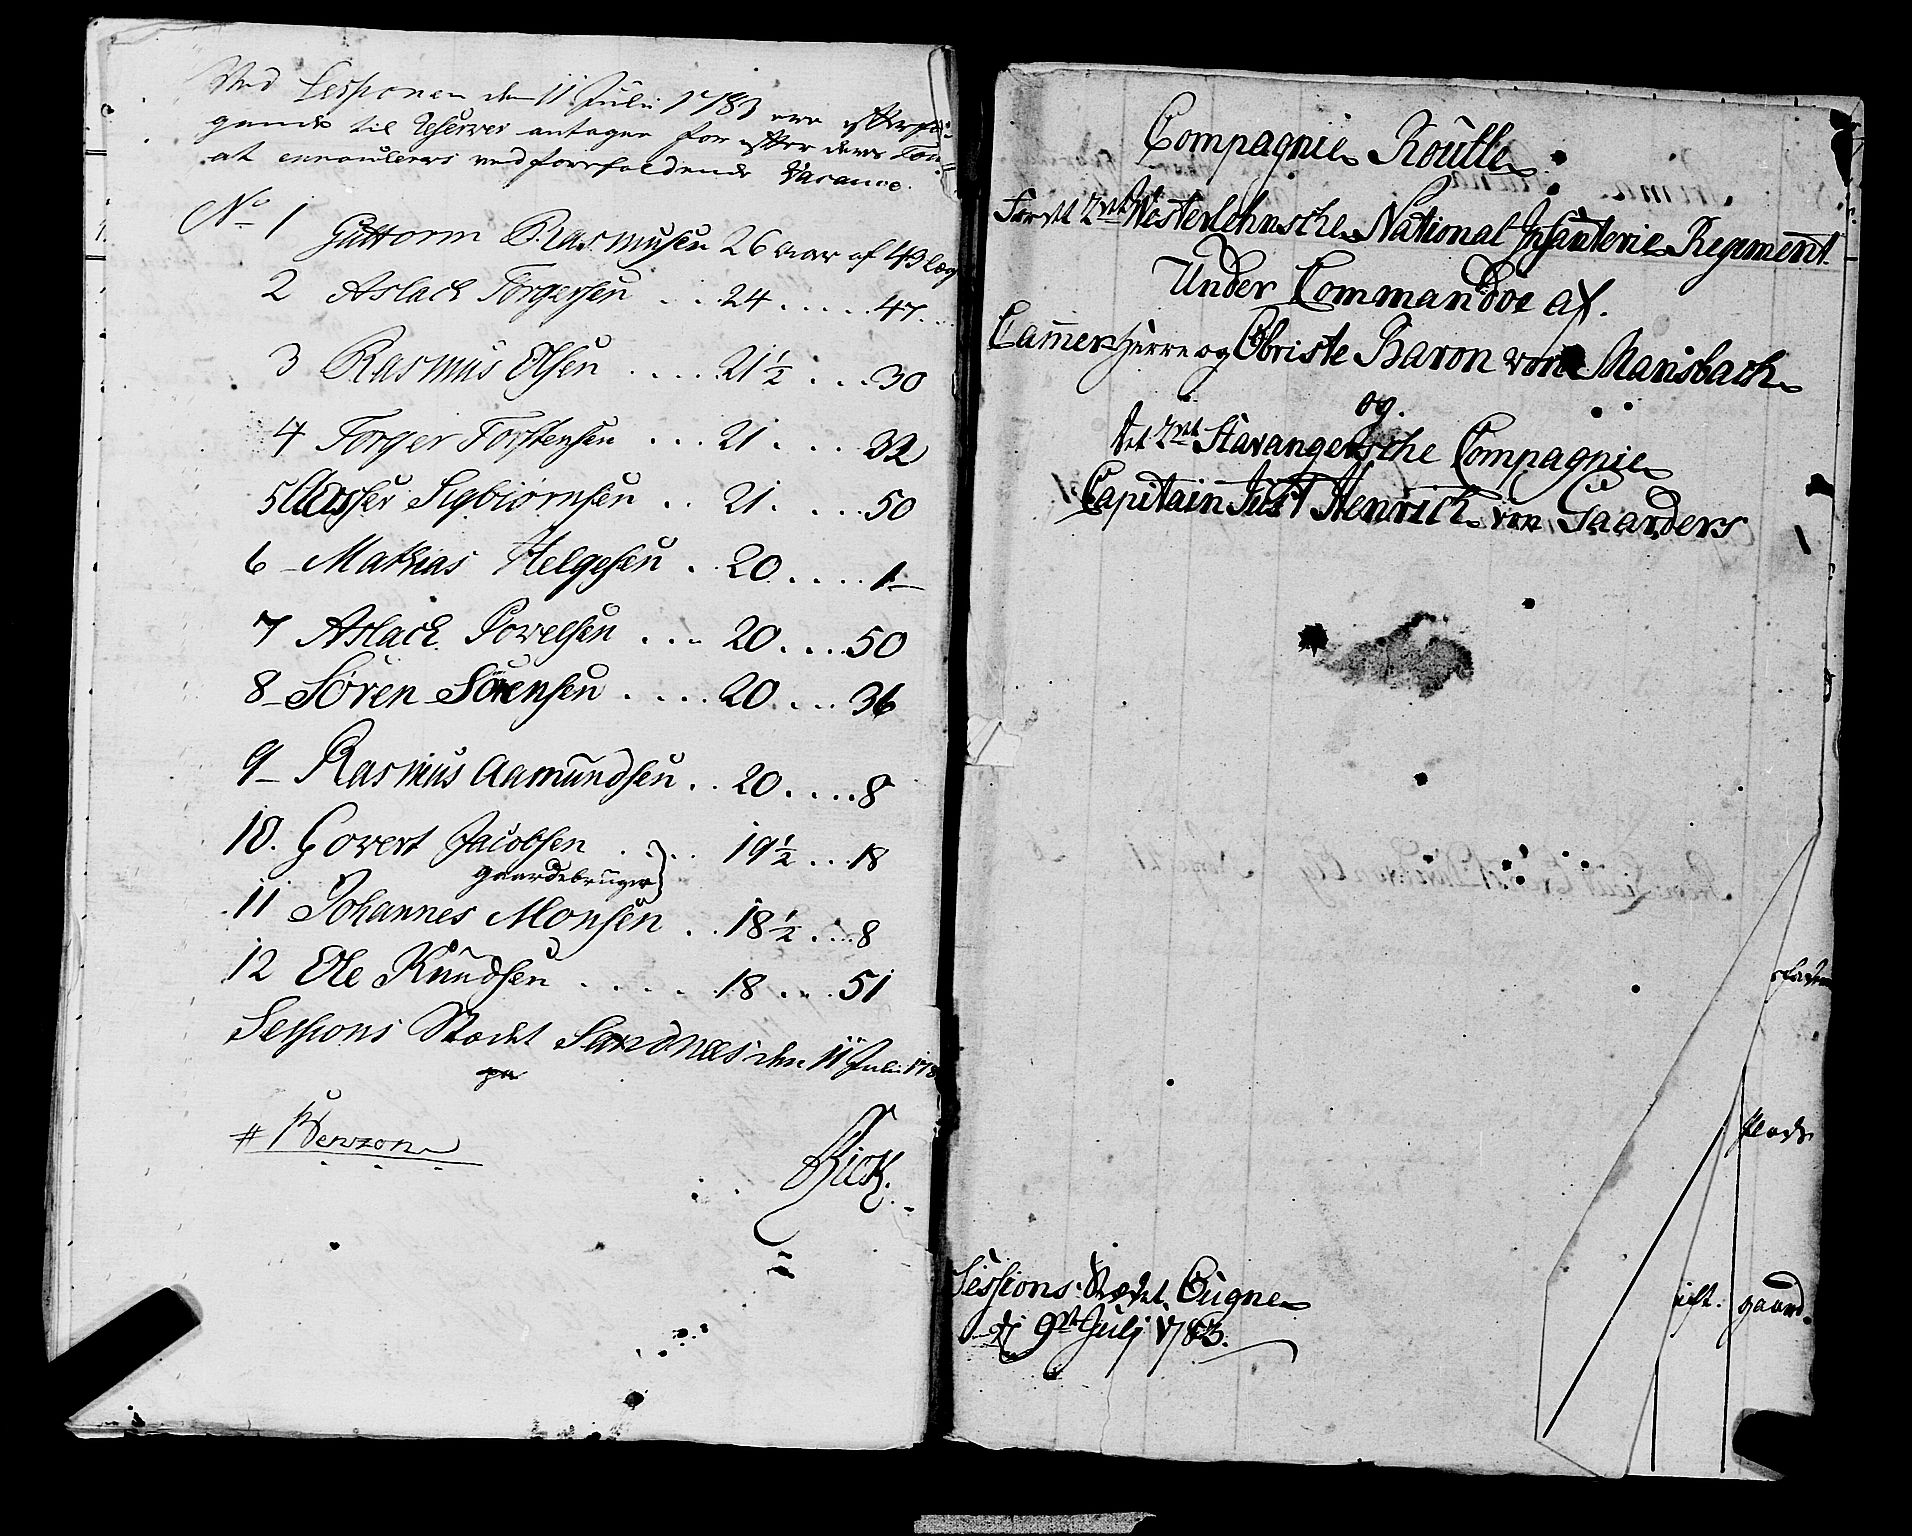 Ved Sessionen den 11 Julii 1783 ere efterføl-
gende til Reserver antagne for efter deres Tour
at enroulleres ved forefaldende Vacance.
No 1 Guttorm Rasmusen 26 aar af 43 læg
2 Aslach Torgersen . . 24 . . . . . 47 . .
3 Rasmus Olsen . . . . 21½ . . . 30
4 Torger Torstensen . . . 21 . . . 32
5 Asser Sigbiørnsen . . 21 . . . . 50
6 - Mathias Helgesen . . 20 . . . . 1
7 Aslach Povelsen . . . 20 . . . . 50
8 - Søren Sørensen . . . . 20 . . . . 36
9 - Rasmus Aamundsen . . 20 . . . . 8
10. Govert Jacobsen . . . 19½ . . 18
gaardebruger
11 Johannes Monsen . . 18½ . . . 8
12 Ole Knudsen . . . . . 18 . . . 51
Sessions Stædet Sandnæs den 11 Julii 178
Bentzon
Bick.
Compagnie Roulle
For det 2det Westerlehnske National Infanterie Regiment
Under Commandoe af.
Camerherre og Obriste Baron von Mansbach
og.
det 2det Stavangerske Compagnie
Capitain Just Henrich von Gaarders
Plads
gaard.
Sessions Stædet Eugne
d 9de Julj 1783.